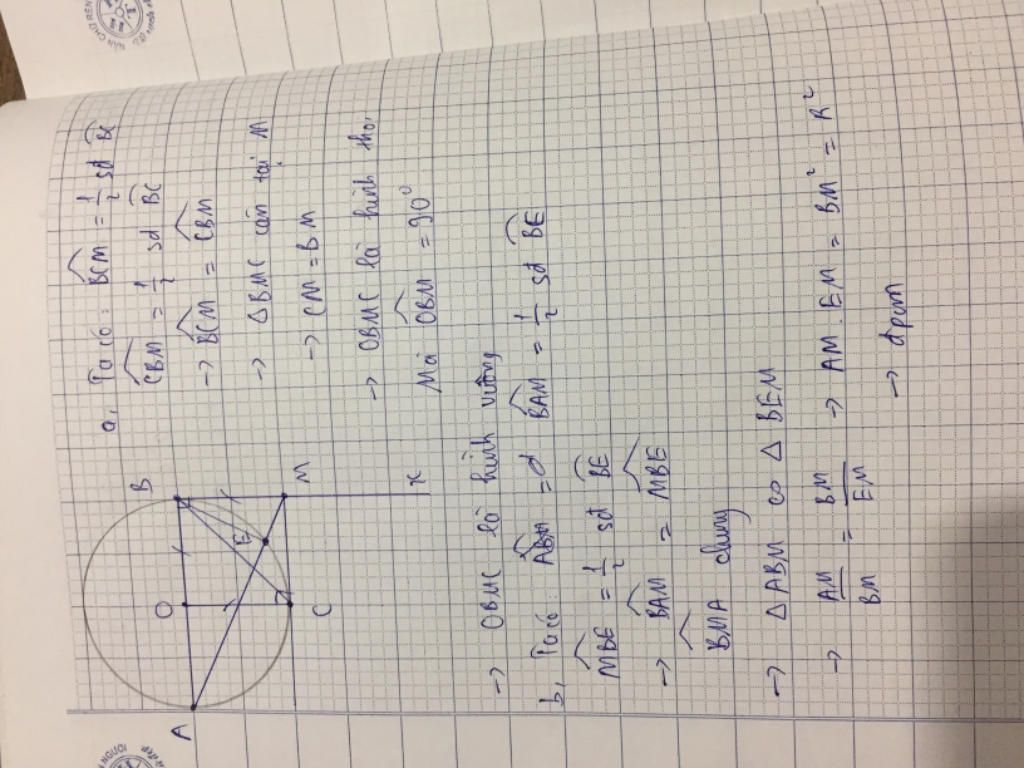 a, Ta có: BCM = 1/2 sđ BC
CBM = 1/2 sđ BC
→ BCM = CBM
→ ΔBMC cân tại M
→ CM = BM
→ OBMC là hình thoi
Mà OBM = 90°
→ OBMC là hình vuông
b, Ta có: ABM = BAM = 1/2 sđ BE
MBE = 1/2 sđ BE
→ BAM = MBE
BMA chung
→ ΔABM ∽ ΔBEM
→ AM/BM = BM/EM → AM . EM = BM² = R²
→ đpcm
A
O
B
E
C
M
x